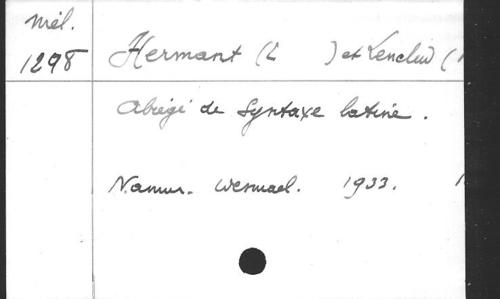 Mél.
1298
Hermant (L      ) et Lenclud (
Abrégé de Syntaxe latine.
Namur. Wesmael.    1933.